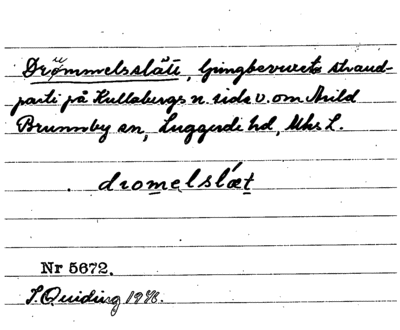 Drömmelsslätt, ljungbevuxet strand-
parti på Kullabergs n. sida v. om Arild
Brunnby sn, Luggude hd, Mks L.
dromelslæt
Nr 5672.
S. Quiding 1946.